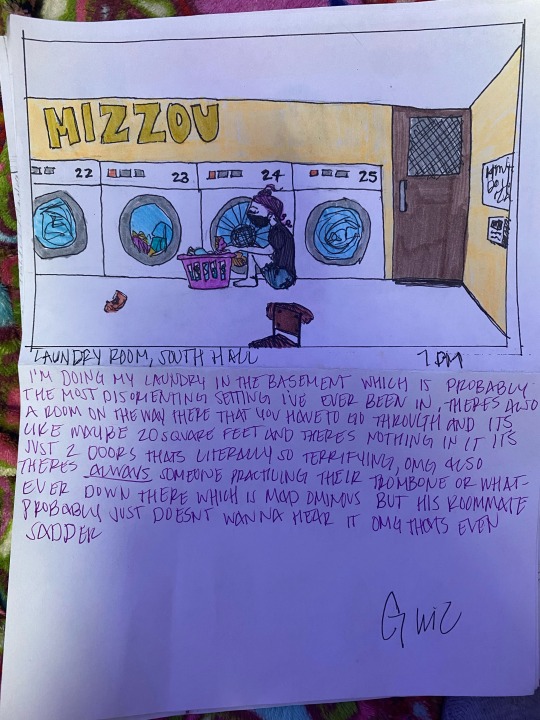 MIZZOU
22
23
24
25
LAUNDRY ROOM, SOUTH HALL
7 PM
I'M DOING MY LAUNDRY IN THE BASEMENT WHICH IS PROBABLY
THE MOST DISORIENTING SETTING I'VE EVER BEEN IN, THERES ALSO
A ROOM ON THE WAY THERE THAT YOU HAVE TO GO THROUGH AND ITS
LIKE MAYBE 20 SQUARE FEET AND THERES NOTHING IN IT ITS
JUST 2 DOORS THATS LITERALLY SO TERRIFYING, OMG ALSO
THERES ALWAYS SOMEONE PRACTICING THEIR TROMBONE OR WHAT-
EVER DOWN THERE WHICH IS MAD OMINOUS BUT HIS ROOMMATE
PROBABLY JUST DOESNT WANNA HEAR IT OMG THATS EVEN
SADDER